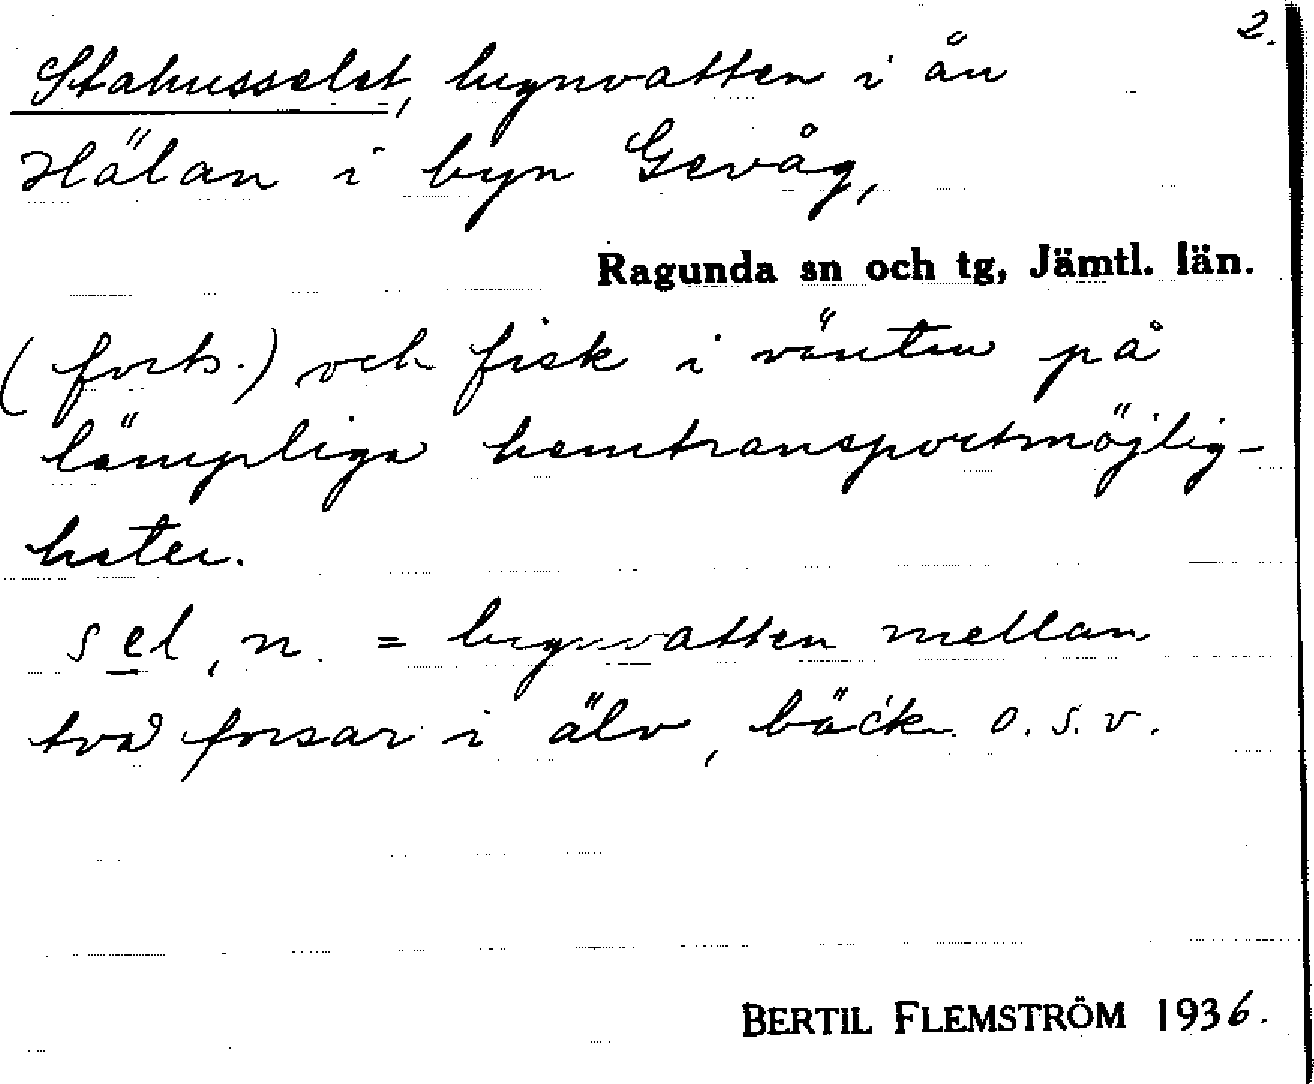 2.
Stahusselet, lugnvatten i ån
Hälan i byn Gevåg,
Ragunda sn och tg, Jämtl. län.
(forts.) och fisk i väntan på
lämpliga hemtransportmöjlig-
heter.
sel, n. = lugnvatten mellan
två forsar i älv, bäck o.s.v.
BERTIL FLEMSTRÖM 1936.